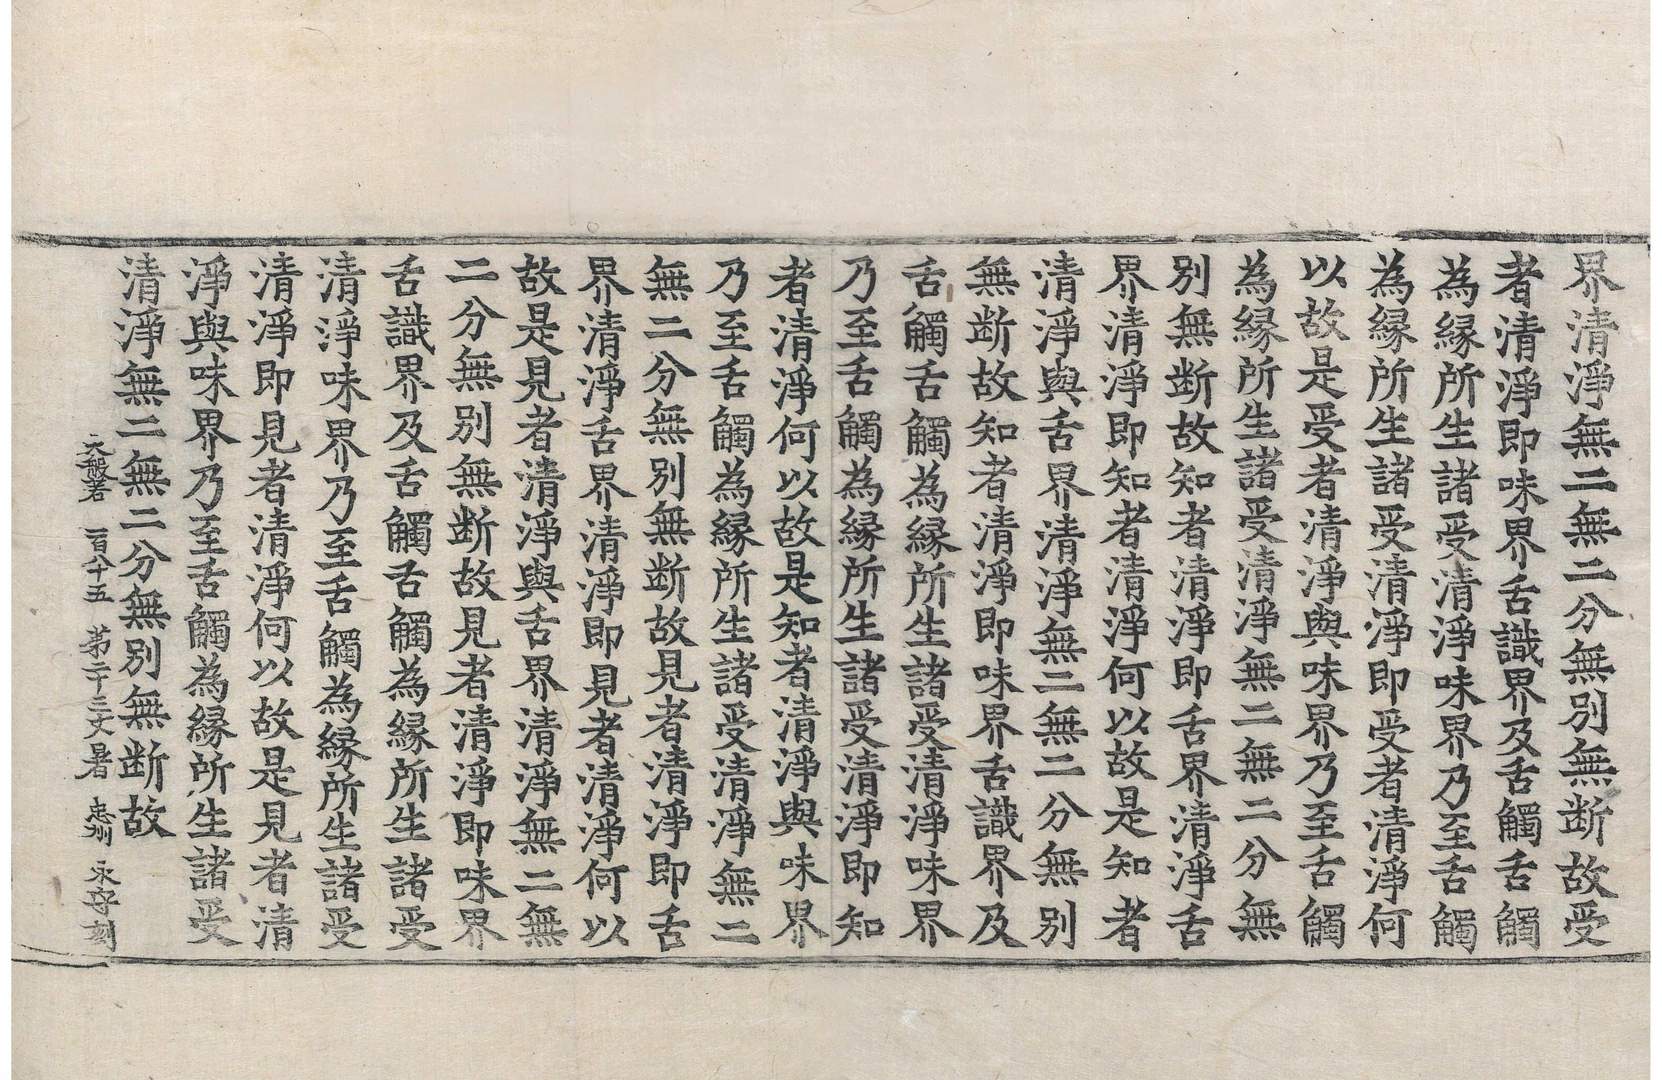 界清淨無二無二分無別無断故受
者清淨即味界舌識界及舌觸舌觸
為縁所生諸受清淨味界乃至舌觸
為縁所生諸受清淨即受者清淨何
以故是受者清淨與味界乃至舌觸
為縁所生諸受清淨無二無二分無
別無断故知者清淨即舌界清淨舌
界清淨即知者清淨何以故是知者
清淨與舌界清淨無二無二分無別
無断故知者清淨即味界舌識界及
舌觸舌觸為縁所生諸受清淨味界
乃至舌觸為縁所生諸受清淨即知
者清淨何以故是知者清淨與味界
乃至舌觸為縁所生諸受清淨無二
無二分無別無断故見者清淨即舌
界清淨舌界清淨即見者清淨何以
故是見者清淨與舌界清淨無二無
二分無別無断故見者清淨即味界
舌識界及舌觸舌觸為縁所生諸受
清淨味界乃至舌觸為縁所生諸受
清淨即見者清淨何以故是見者清
淨與味界乃至舌觸為縁所生諸受
清淨無二無二分無別無断故
大般若 一百八十五 第二十三丈 暑 忠州 永守刻